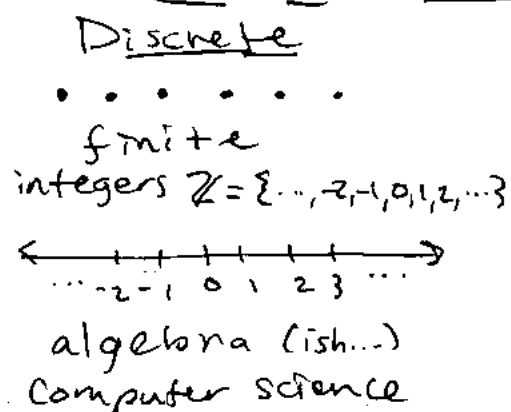 Discrete
finite
integers ℤ = {..., -2, -1, 0, 1, 2, ...}
... -2 -1 0 1 2 3 ...
algebra (ish...)
Computer science